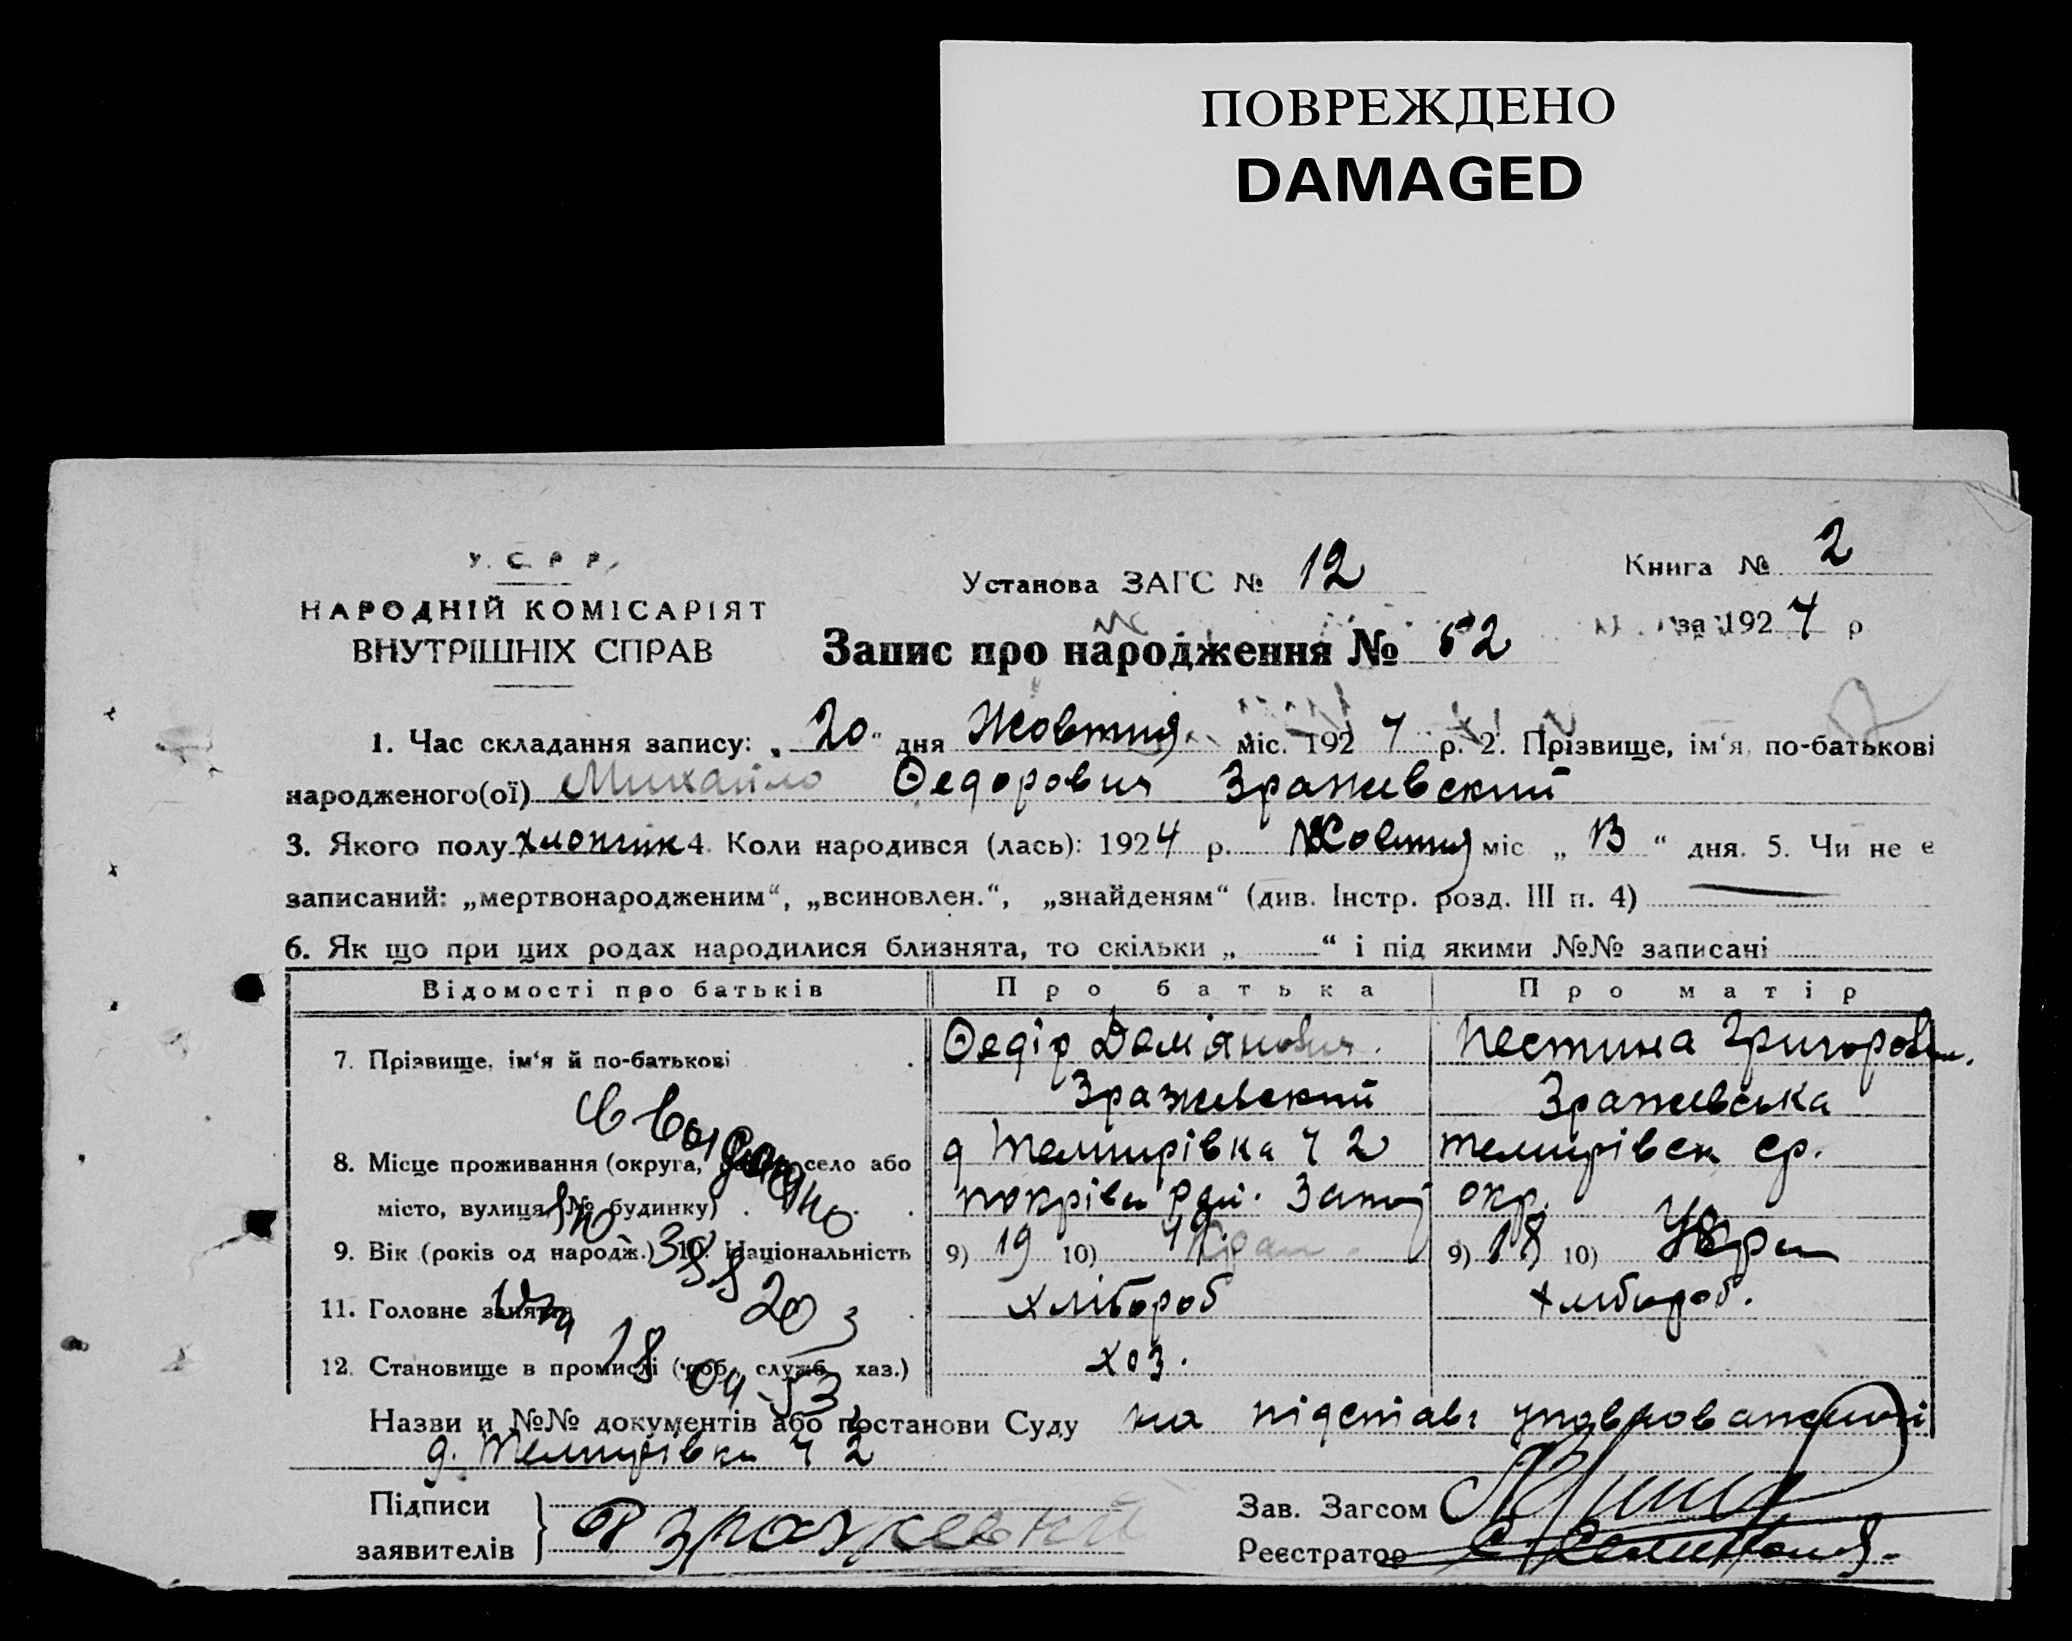 ПОВРЕЖДЕНО
DAMAGED
У.С.Р.Р.
НАРОДНІЙ КОМІСАРІЯТ
ВНУТРІШНІХ СПРАВ
Установа ЗАГС № 12
Книга № 2
за 1924 р
Запис про народження № 52
1. Час складання запису: „20“ дня Жовтня міс. 1924 р. 2. Прізвище, ім‘я, по-батькові
народженого(ої) Михайло Ѳедорович Зражевский
3. Якого полу хлопчик 4. Коли народився (лась): 1924 р. Жовтня міс „13“ дня. 5. Чи не є
записаний: „мертвонародженим“, „всиновлен.“, „знайденям“ (див. Інстр. розд. III п. 4)
6. Як що при цих родах народилися близнята, то скільки „ “ і під якими №№ записані
Відомості про батьків Про батька Про матір
7. Прізвище, ім‘я й по-батькові Ѳедір Дем'янович Зражевский
Григоров. Зражевська
8. Місце проживання (округа, село або
місто, вулиця, № будинку)
д Темирівка ч 2
покрівн рай. Запор окр.
9. Вік (років од народж.) 10. Національність 9) 19 10) Укран 9) 18 10) Укра
11. Головне заняття хлібороб хлібороб.
12. Становище в промислі (роб., служб. хаз.) хоз.
Свидетельство
18 04 53
Назви и №№ документів або постанови Суду на підставі
д. Темирівка ч 2
Підписи
заявителів
Ѳ Зражевский
Зав. Загсом
Реєстратор